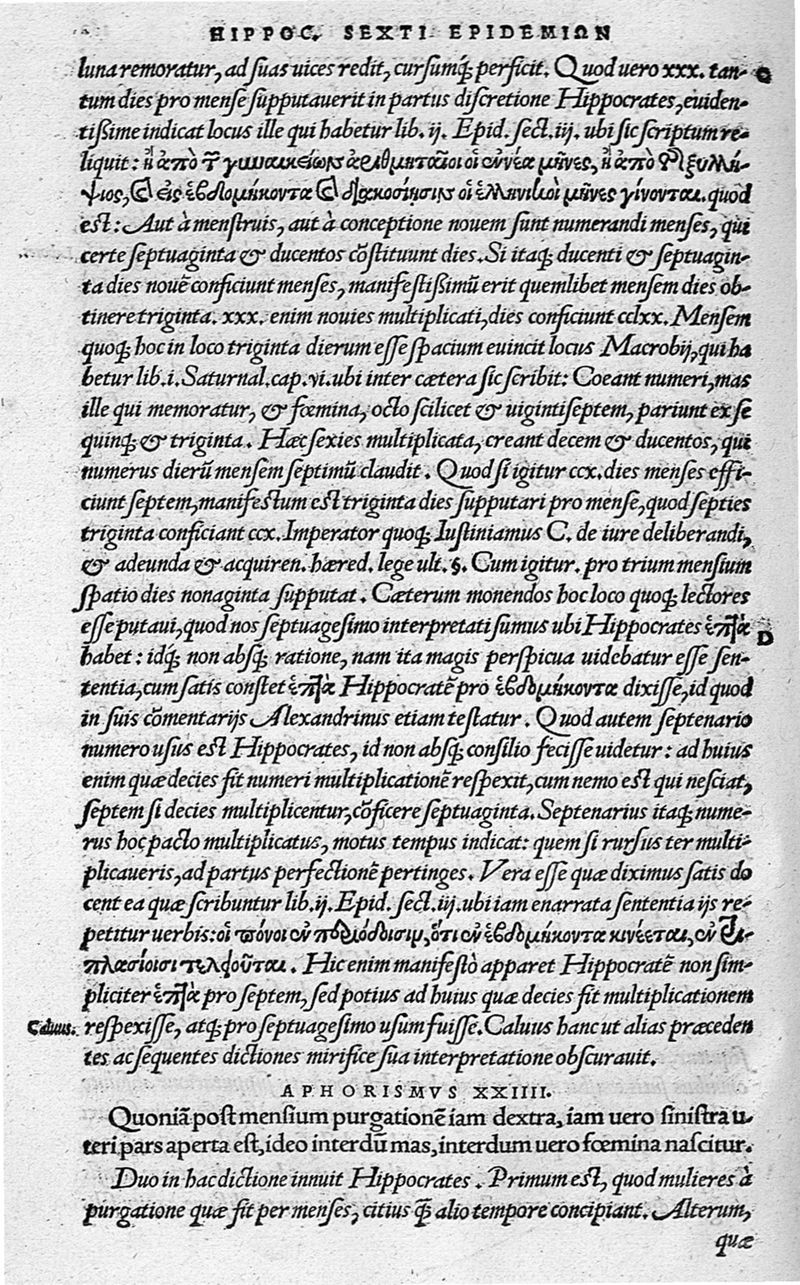 HIPPOC. SEXTI EPIDEMIΩN
luna remoratur, ad suas uices redit, cursumq́; perficit. Quod uero xxx. tan-
tum dies pro mense supputauerit in partus discretione Hippocrates, euiden-
tißime indicat locus ille qui habetur lib. ij. Epid. sect. iij. ubi sic scriptum re-
liquit: ἢ ἀπὸ τῶν γυναικείων ἀριθμητέοι οἱ ἐννέα μῆνες, ἢ ἀπὸ τῆς ξυλλή-
ψιος, καὶ εἰς ἑβδομήκοντα καὶ διακοσίῃσιν οἱ ἑλληνικοὶ μῆνες γίνονται. quod
est: Aut à menstruis, aut à conceptione nouem sunt numerandi menses, qui
certe septuaginta & ducentos cōstituunt dies. Si itaq; ducenti & septuagin-
ta dies nouē conficiunt menses, manifestißimū erit quemlibet mensem dies ob-
tinere triginta. xxx. enim nouies multiplicati, dies conficiunt cclxx. Mensem
quoq; hoc in loco triginta dierum esse spacium euincit locus Macrobij, qui ha
betur lib. i. Saturnal. cap. vi. ubi inter cætera sic scribit: Coeant numeri, mas
ille qui memoratur, & fœmina, octo scilicet & uigintiseptem, pariunt ex se
quinq; & triginta. Hæc sexies multiplicata, creant decem & ducentos, qui
numerus dierū mensem septimū claudit. Quod si igitur ccx. dies menses effi-
ciunt septem, manifestum est triginta dies supputari pro mense, quod septies
triginta conficiant ccx. Imperator quoq; Iustinianus C. de iure deliberandi,
& adeunda & acquiren. hæred. lege ult. §. Cum igitur. pro trium mensium
spatio dies nonaginta supputat. Cæterum monendos hoc loco quoq; lectores
esse putaui, quod nos septuagesimo interpretati sumus ubi Hippocrates ἑπτὰ D
habet: idq́; non absq; ratione, nam ita magis perspicua uidebatur esse sen-
tentia, cum satis constet ἑπτὰ Hippocratē pro ἑβδομήκοντα dixisse, id quod
in suis cōmentarijs Alexandrinus etiam testatur. Quod autem septenario
numero usus est Hippocrates, id non absq; consilio fecisse uidetur: ad huius
enim quæ decies fit numeri multiplicationē respexit, cum nemo est qui nesciat,
septem si decies multiplicentur, cōficere septuaginta. Septenarius itaq; nume-
rus hoc pacto multiplicatus, motus tempus indicat: quem si rursus ter multi-
plicaueris, ad partus perfectionē pertinges. Vera esse quæ diximus satis do
cent ea quæ scribuntur lib. ij. Epid. sect. iij. ubi iam enarrata sententia ijs re-
petitur uerbis: οἱ πόνοι ἐν περιόδοισιν, ὅτι ἐν ἑβδομήκοντα κινέεται, ἐν τρι-
πλασίοισι τελειοῦται. Hic enim manifestò apparet Hippocratē non sim-
pliciter ἑπτὰ pro septem, sed potius ad huius quæ decies fit multiplicationem
Caluus. respexisse, atq; pro septuagesimo usum fuisse. Caluus hanc ut alias præceden
tes ac sequentes dictiones mirifice sua interpretatione obscurauit.
APHORISMVS XXIIII.
Quoniā post mensium purgationē iam dextra, iam uero sinistra u-
teri pars aperta est, ideo interdū mas, interdum uero fœmina nascitur.
Duo in hac dictione innuit Hippocrates. Primum est, quod mulieres à
purgatione quæ fit per menses, citius q̄ alio tempore concipiant. Alterum,
quæ